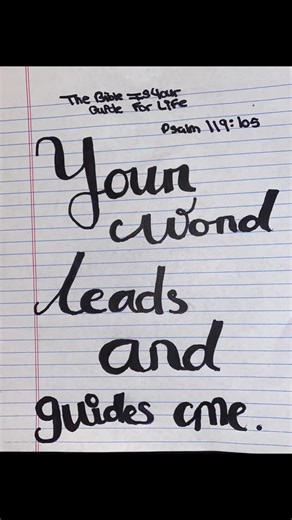 The Bible is Your
Guide For Life
Psalm 119:105
Your
word
leads
and
guides me.